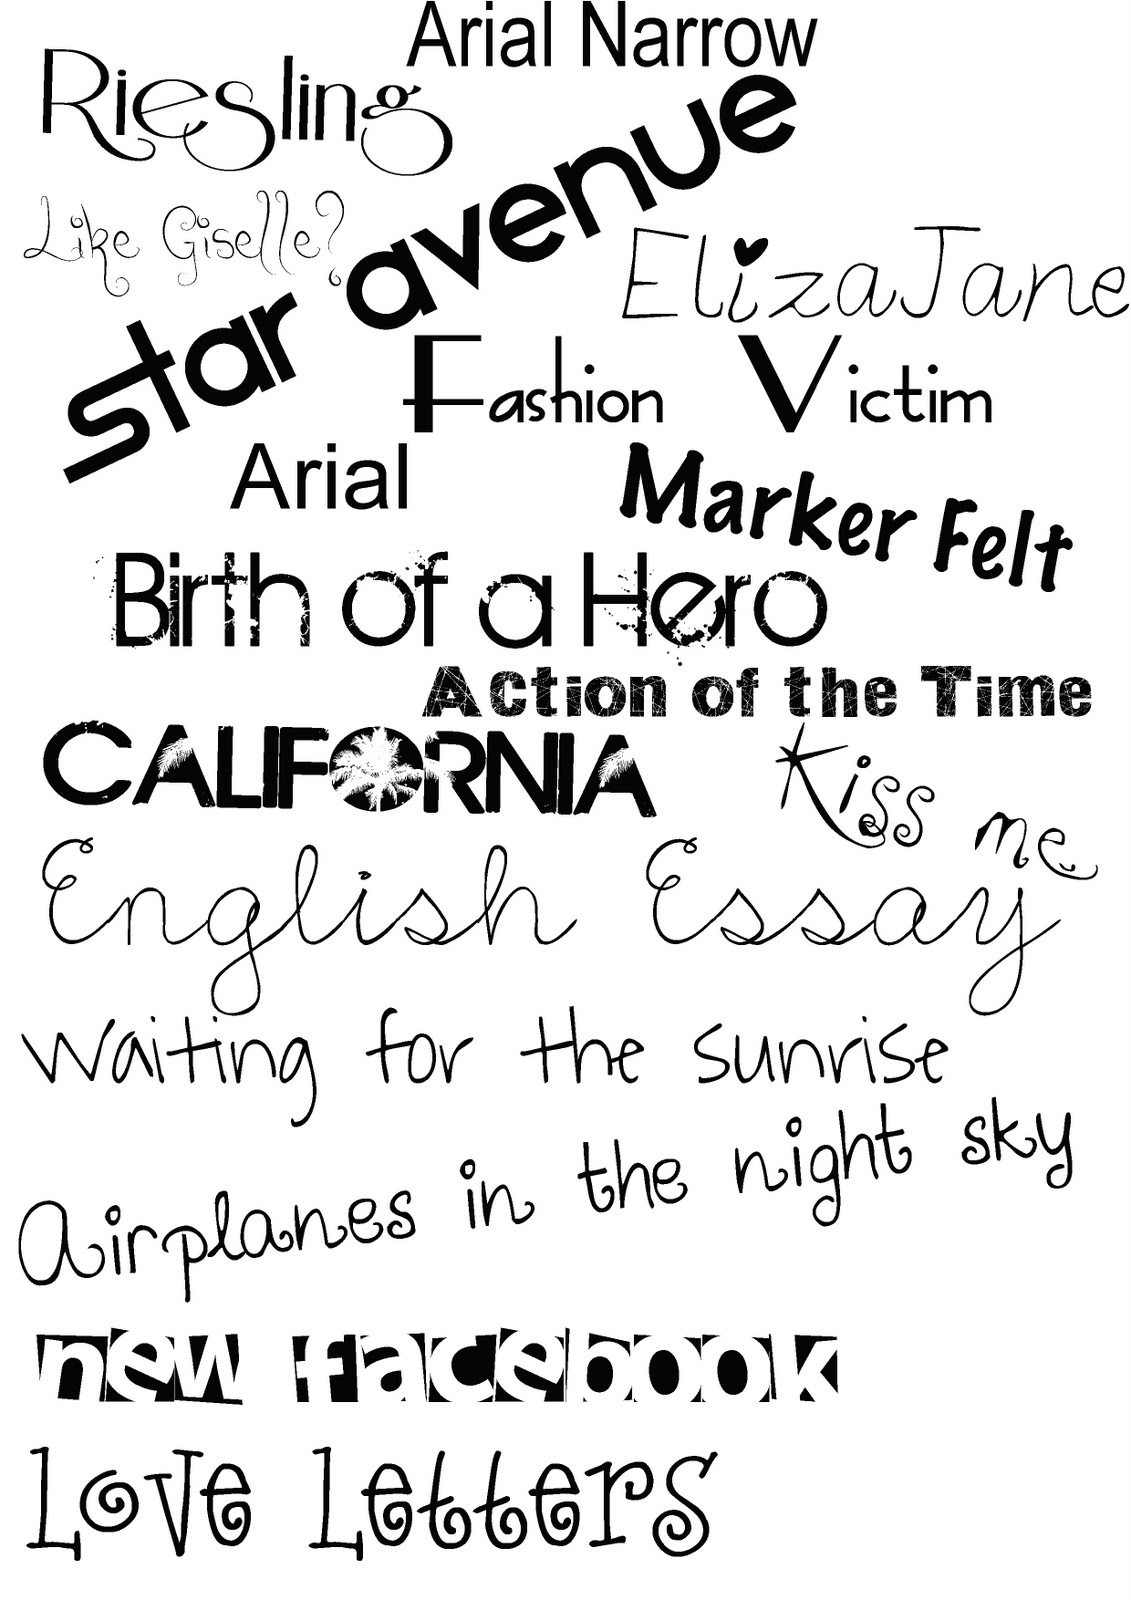 Arial Narrow
Riesling
star avenue
Like Giselle?
ElizaJane
Fashion Victim
Arial
Marker Felt
Birth of a Hero
Action of the Time
CALIFORNIA
Kiss me
English Essay
Waiting for the sunrise
Airplanes in the night sky
new facebook
Love Letters